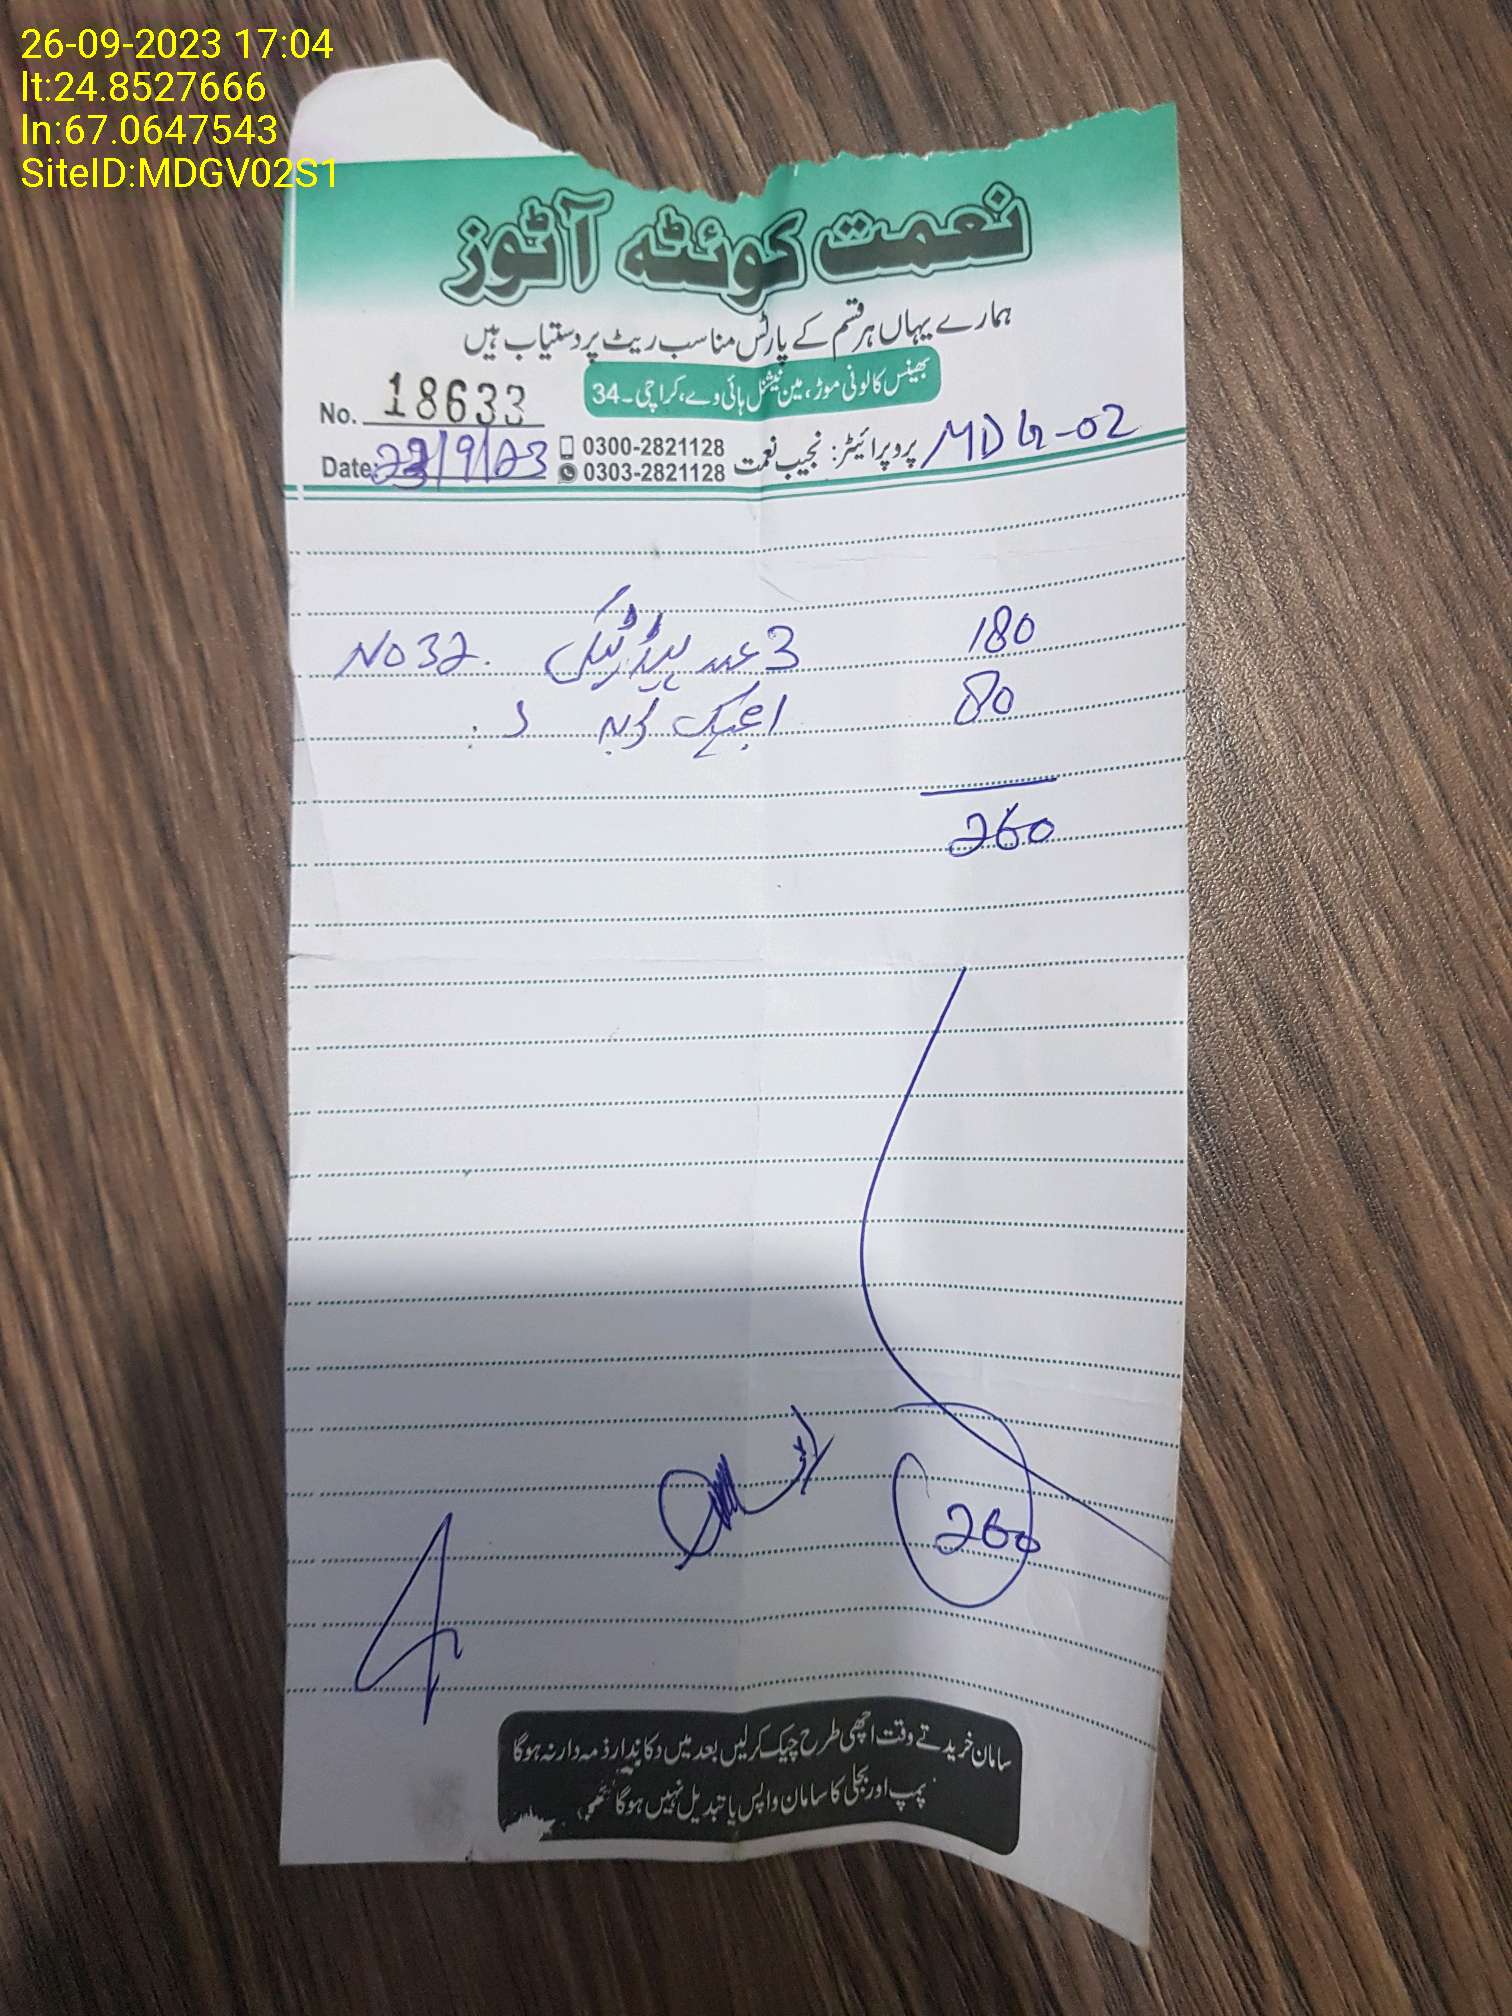 26-09-2023 17:04
lt:24.8527666
ln:67.0647543
SiteID:MDGV02S1
نعمت کوئٹہ آٹوز
ہمارے یہاں ہر قسم کے پارٹس مناسب ریٹ پر دستیاب ہیں
بھینس کالونی موڑ، مین نیشنل ہائی وے، کراچی۔34
No. 18633
Date: /9/23
0300-2821128
0303-2821128
پروپرائیٹر: نجیب نعمت
MDG-02
3 عدد NO 32. 180
80
260
260
سامان خریدتے وقت اچھی طرح چیک کرلیں بعد میں دکاندار ذمہ دار نہ ہوگا
پمپ اور بجلی کا سامان واپس یا تبدیل نہیں ہوگا